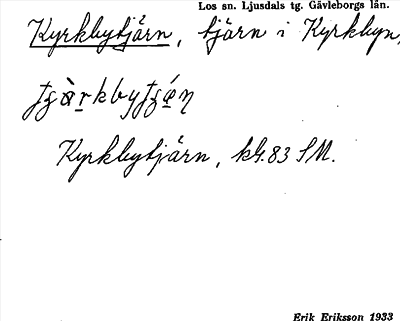 Los sn. Ljusdals tg. Gävleborgs län.
Kyrkbytjärn, tjärn i Kyrkbyn,
Kyrkbytjärn, kG.83 SM.
Erik Eriksson 1933